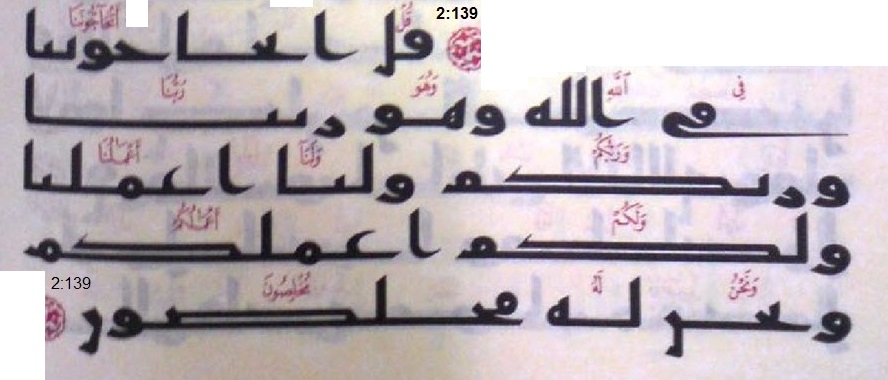 2:139
قُلْ أَتُحَآجُّونَنَا
قل اتحاجوننا
فِى ٱللَّهِ وَهُوَ رَبُّنَا
فى الله وهو ربنا
وَرَبُّكُمْ وَلَنَآ أَعْمَٰلُنَا
وربكم ولنا اعملنا
وَلَكُمْ أَعْمَٰلُكُمْ
ولكم اعملكم
2:139
وَنَحْنُ لَهُۥ مُخْلِصُونَ
ونحن له مخلصون